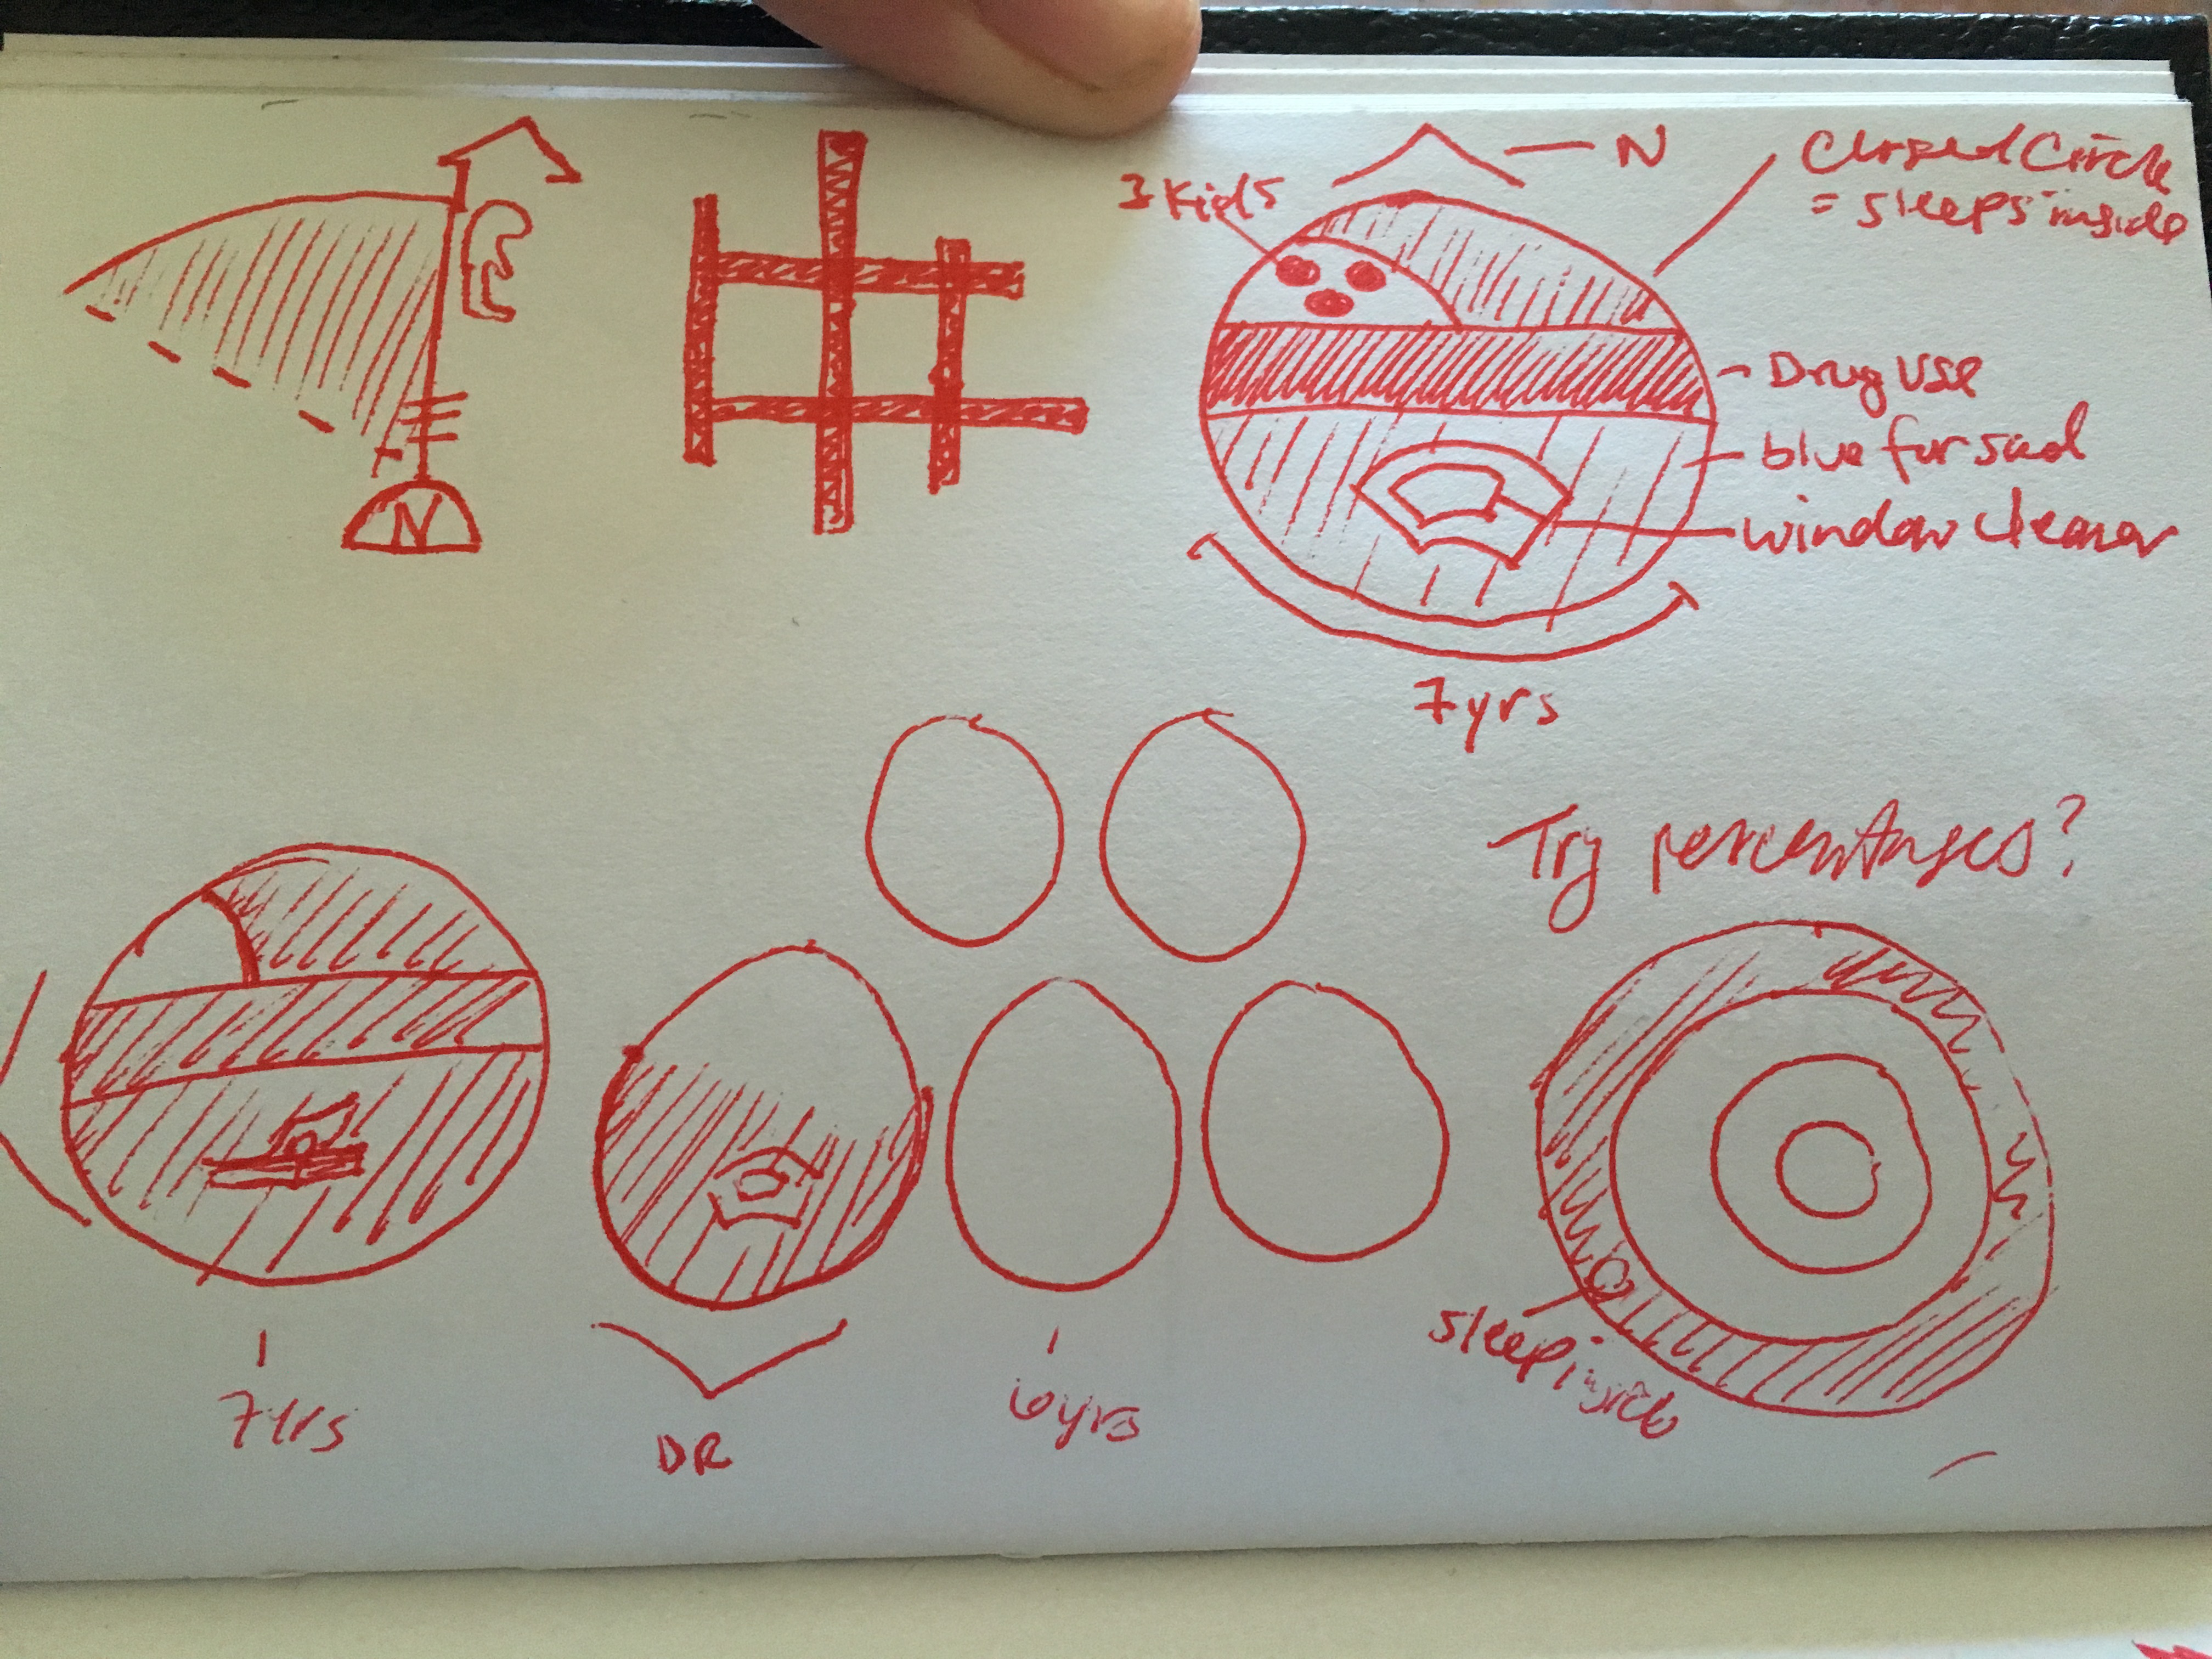 N
N
3 Kids
Closed Circle
= sleeps inside
Drug Use
blue for sad
window cleaner
7yrs
Try percentages?
sleep inside
7yrs
DR
6yrs